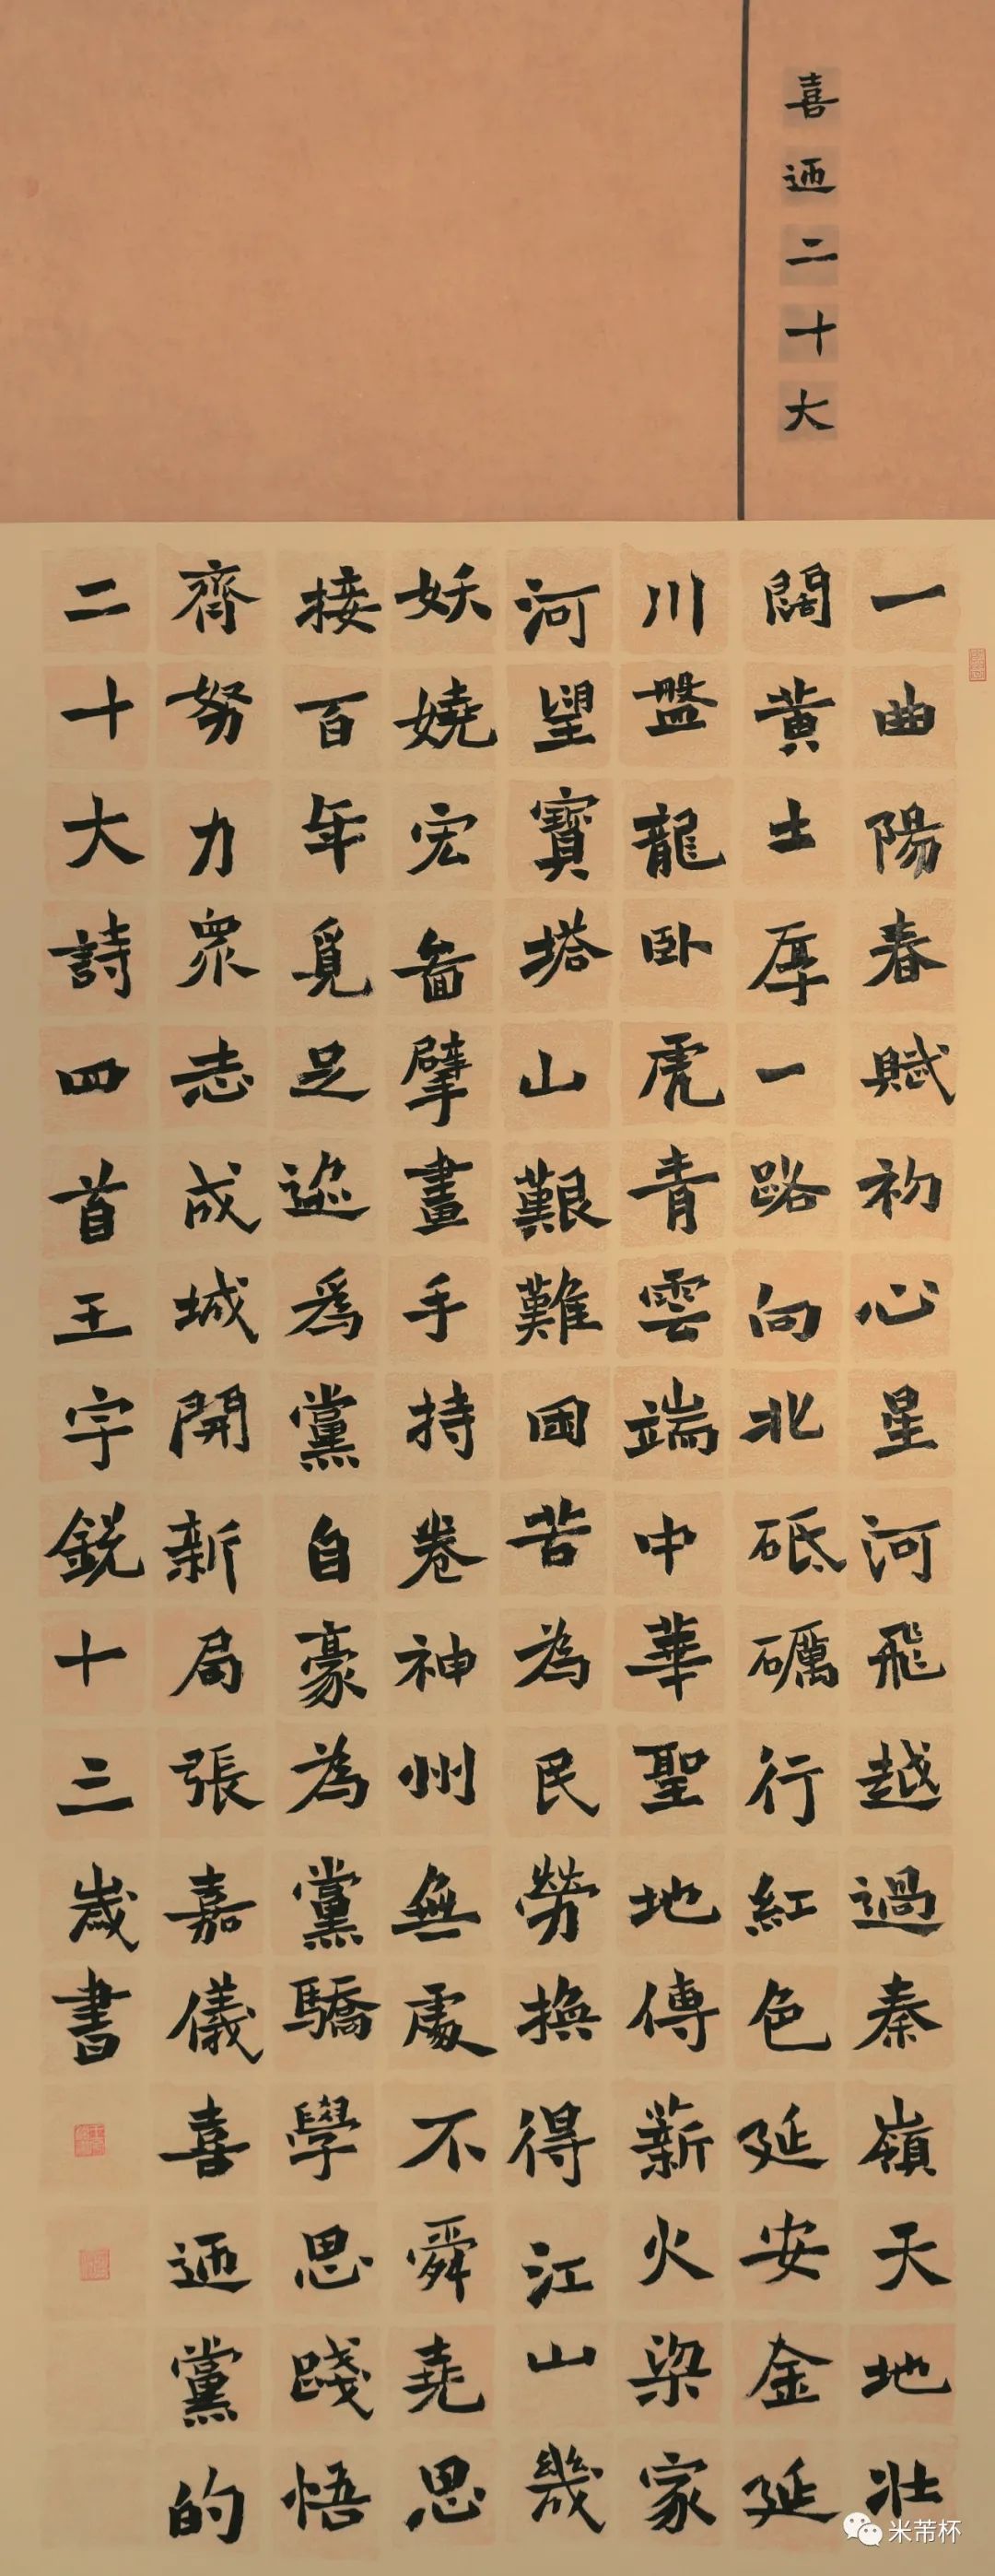 喜迊二十大
一曲陽春賦初心星河飛越過秦嶺天地壯
闊黄土厚一路向北砥礪行紅色延安金延
川盤龍卧虎青雲端中華聖地傳薪火梁家
河望寶塔山艱難困苦為民勞換得江山幾
妖嬈宏畣擘畫手持卷神州無處不舜堯思
接百年覓足迹爲黨自豪為黨驕學思踐悟
齊努力眾志成城開新局張嘉儀喜迊黨的
二十大詩四首王宇銳十三歲書
米芾杯